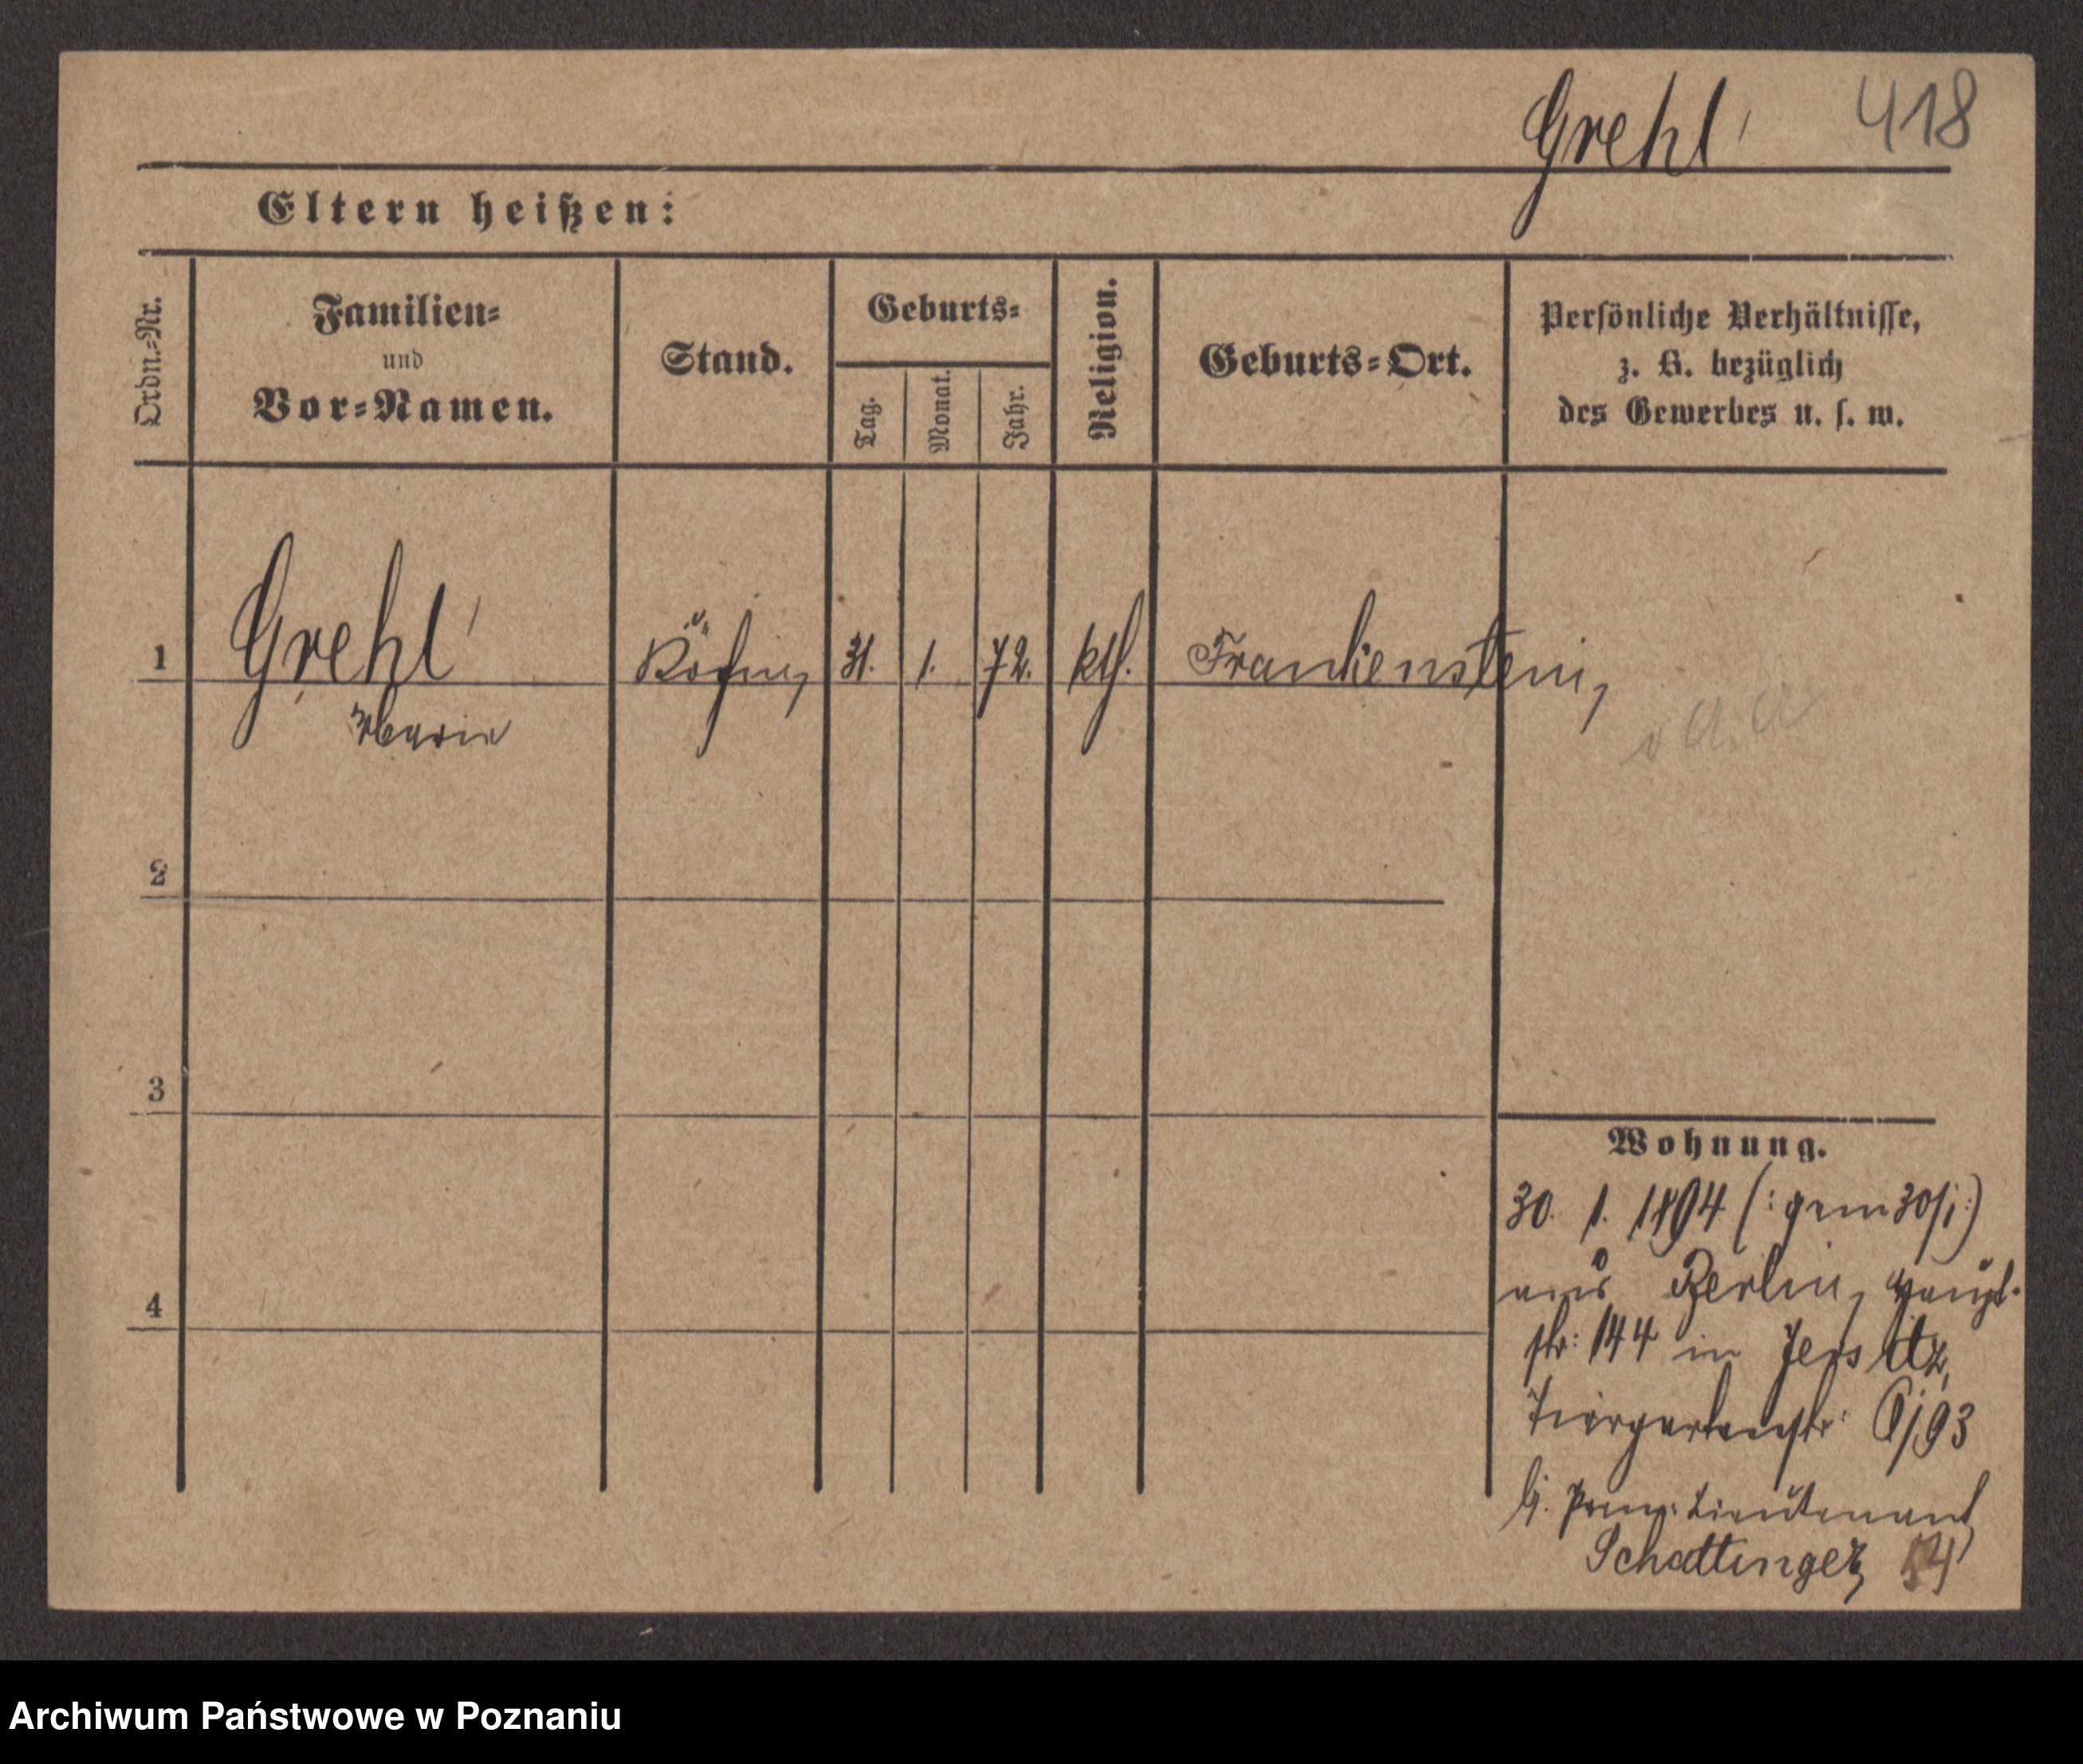 Grehl 418
Eltern heißen:
Ordn.-Nr.
Familien-
und
Vor-Namen.
Stand.
Geburts-
Tag.
Monat.
Jahr.
Religion.
Geburts-Ort.
Persönliche Verhältnisse,
z. B. bezüglich
des Gewerbes u. s. w.
1 Grehl Köchin, 31. 1. 72. kth. Frankenstein,
Marie
2
3
4
Wohnung.
30. 1. 1894 (: gem 30/1:)
aus Berlin, Haupt-
str: 144 in Jersitz,
Tiergartenstr: 93
b. Prem: Lieutenant
Schattinger,
Archiwum Państwowe w Poznaniu